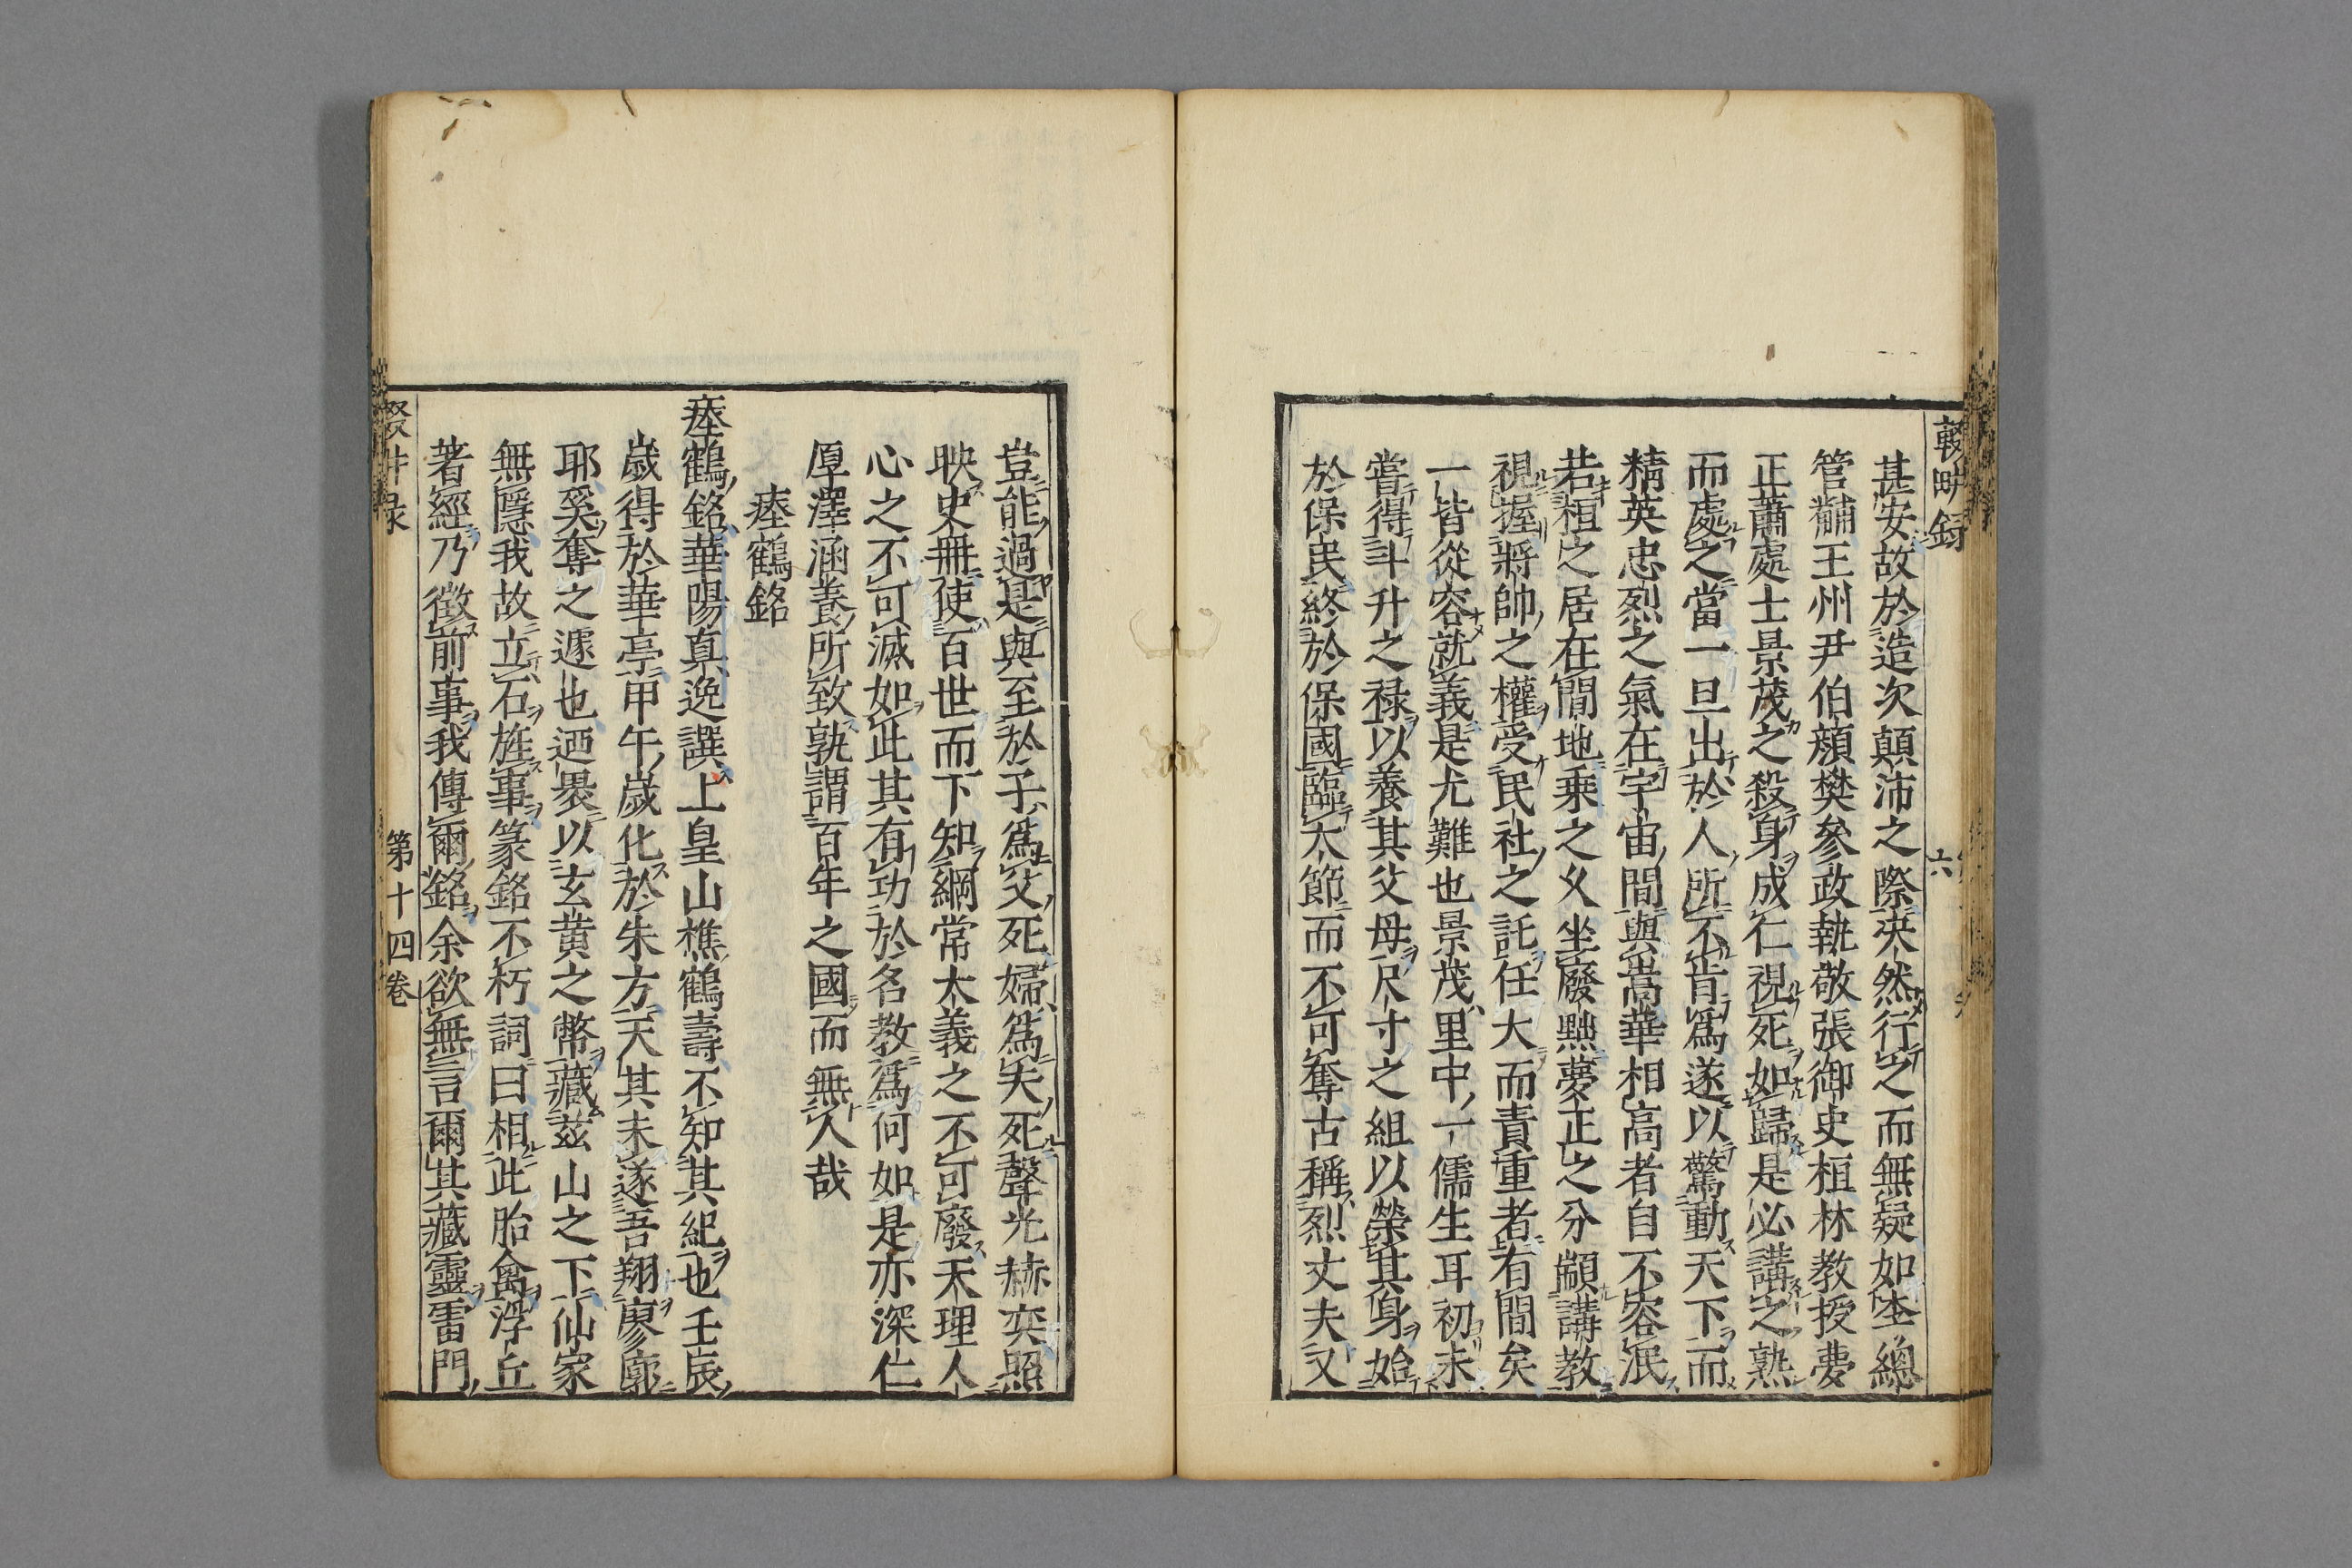 輟畊録
六
甚安故於造次顛沛之際决然行之而無疑如李總
管黼王州尹伯顔樊參政執敬張御史桓林教授夢
正蕭處士景茂之殺身成仁視死如歸是必講之熟
而處之當一旦出於人所不肯爲遂以驚動天下而
精英忠烈之氣在宇宙間與嵩華相高者自不容泯
若桓之居在閒地乗之乆坐廢黙夢正之分顓講教
視握將帥之權受民社之託任大而責重者有間矣
一皆從容就義是尤難也景茂里中一儒生耳初未
嘗得斗升之禄以養其父母尺寸之組以榮其身始
於保民終於保國臨大節而不可奪古稱烈丈夫又
豈能過是與至於子爲父死婦爲夫死聲光赫奕照
映史冊使百世而下知綱常大義之不可廢天理人
心之不可滅如此其有功於名教爲何如是亦深仁
厚澤涵養所致孰謂百年之國而無人哉
瘞鶴銘
瘞鶴銘華陽真逸譔上皇山樵鶴壽不知其紀也壬辰
歲得於華亭甲午歲化於朱方天其未遂吾翔廖廓
耶奚奪之遽也迺裹以玄黄之幣藏茲山之下仙家
無隱我故立石旌事篆銘不朽詞曰相此胎禽浮丘
著經乃徵前事我傳爾銘余欲無言爾其藏靈雷門
第十四卷